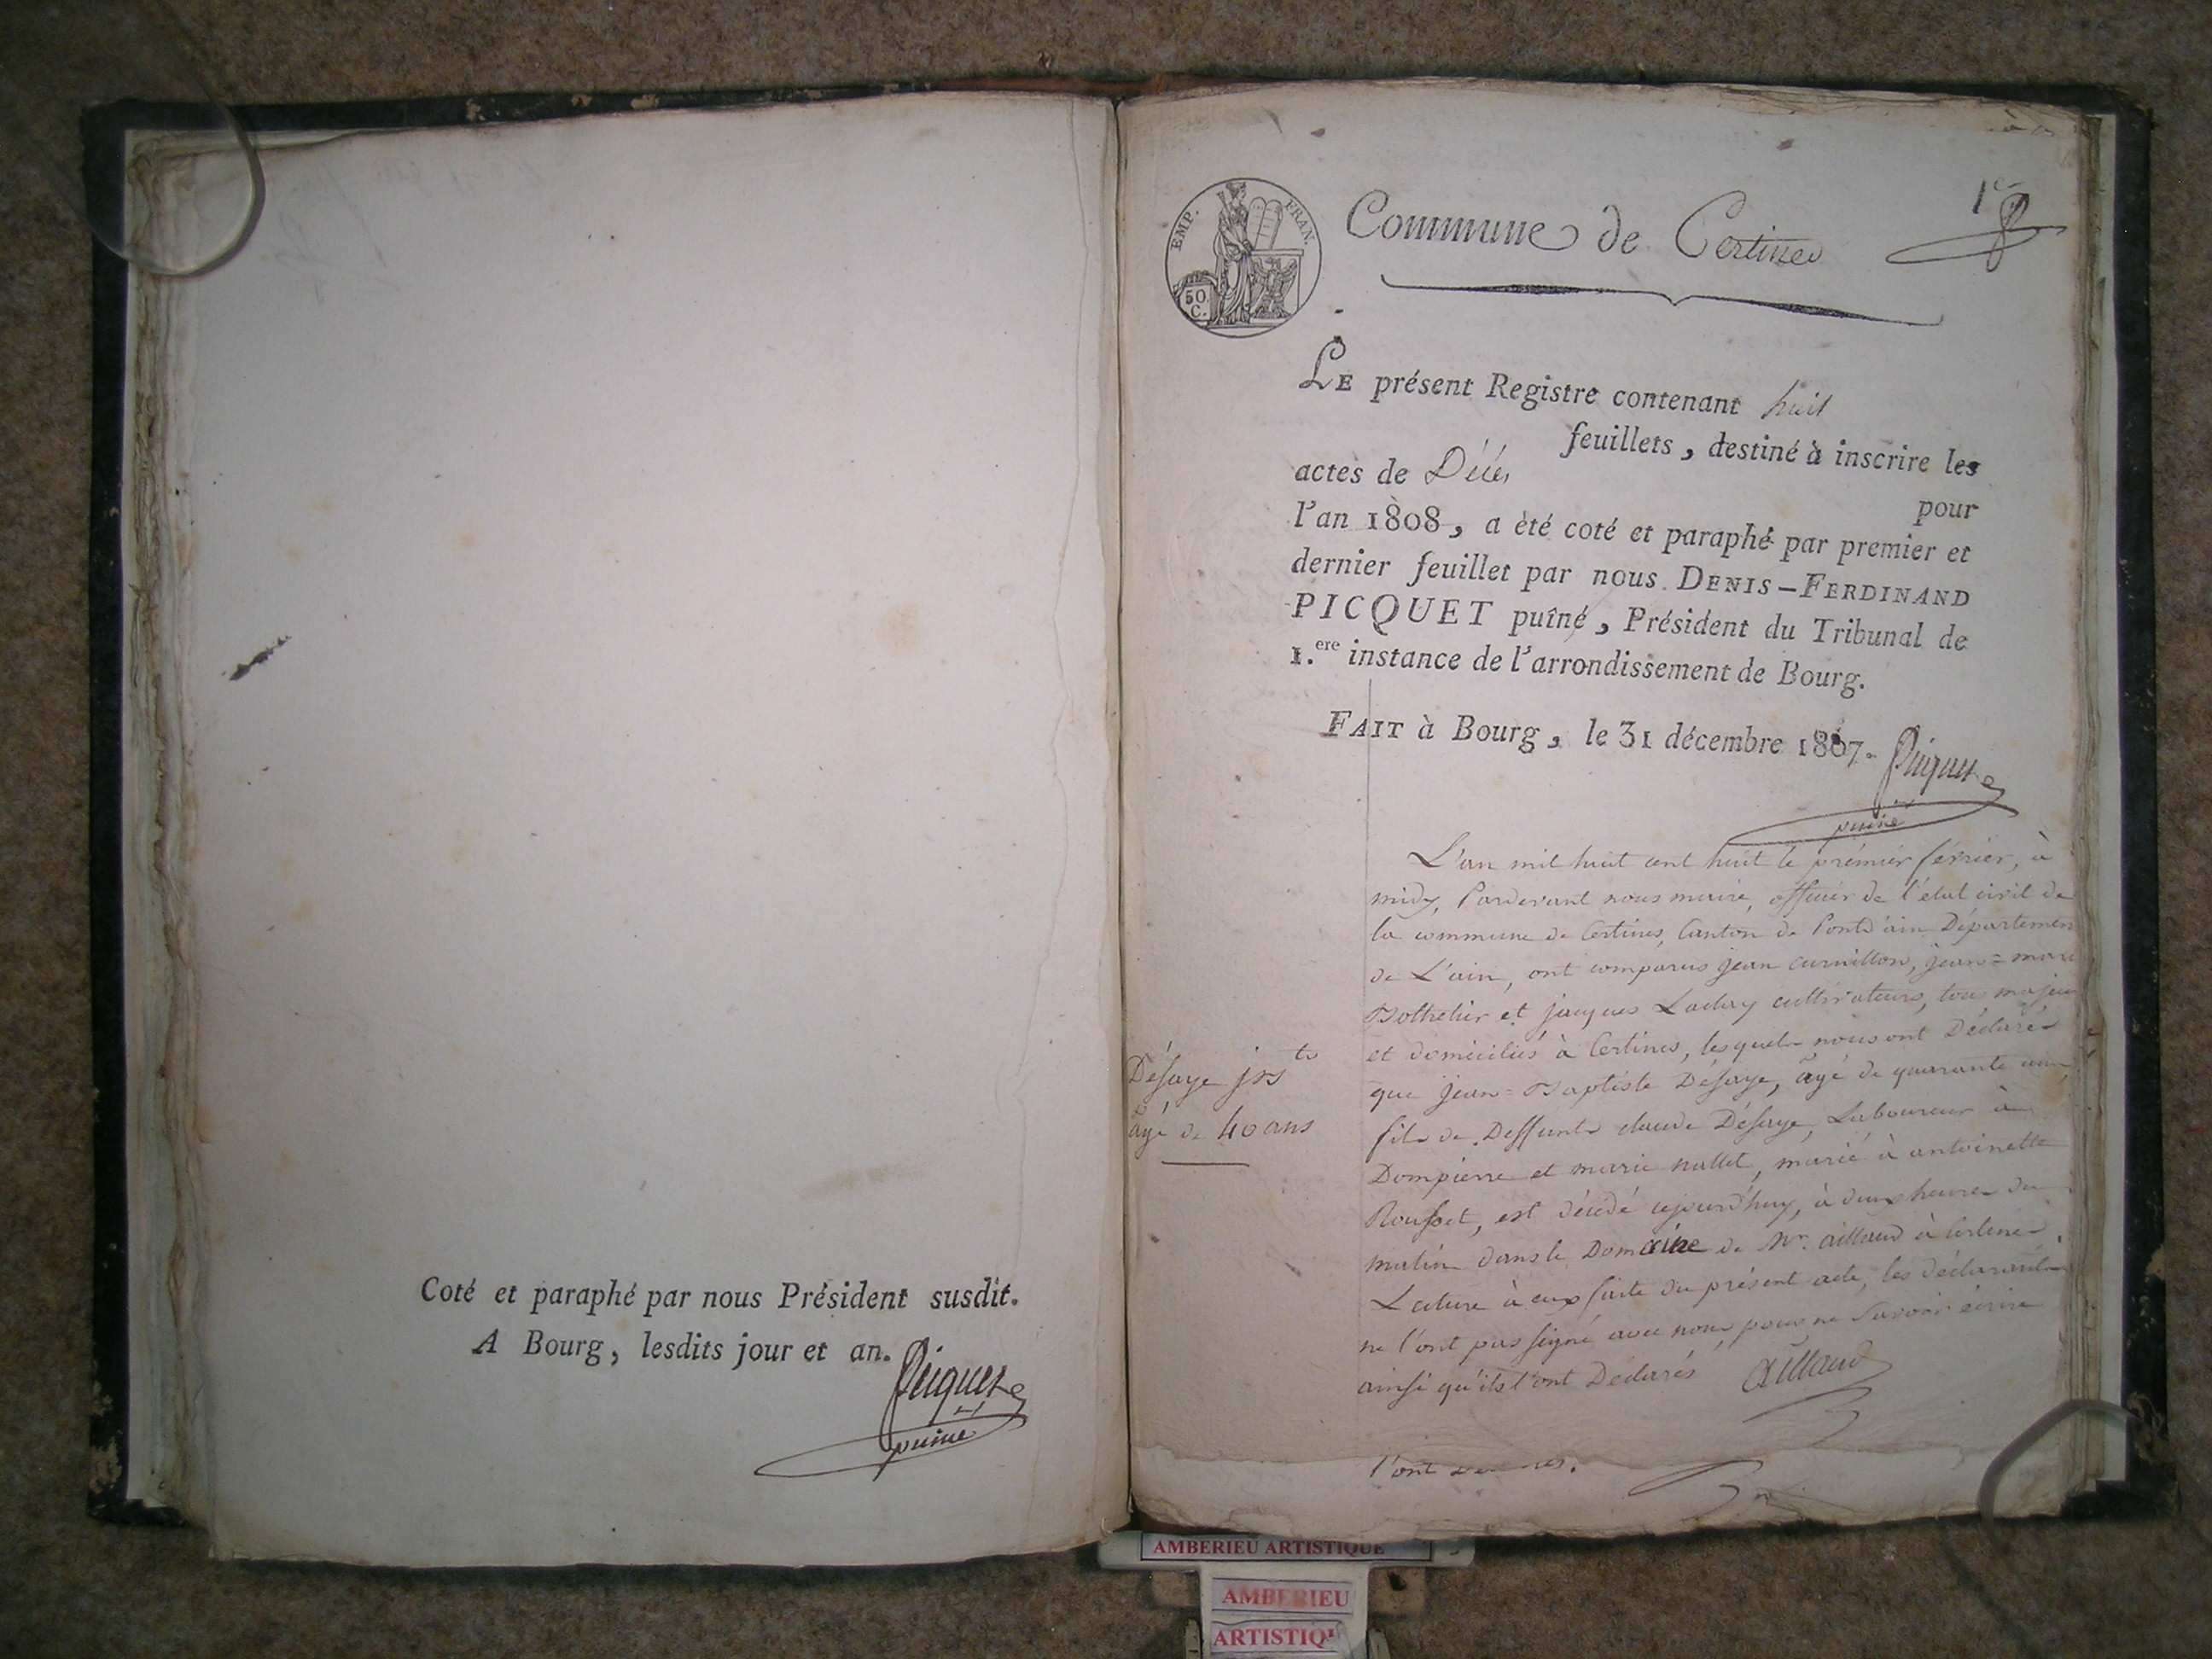 Coté et paraphé par nous Président susdit.
A Bourg, lesdits jour et an.
Picquet
puiné
1er
EMP. FRAN.
50 C.
Commune de Certines
LE présent Registre contenant huit
feuillets, destiné à inscrire les
actes de Décès
pour
l'an 1808, a èté coté et paraphé par premier et
dernier feuillet par nous DENIS-FERDINAND
PICQUET puîné, Président du Tribunal de
1.ere instance de l'arrondissement de Bourg.
FAIT à Bourg, le 31 décembre 1807.
Picquet
puiné
L'an mil huit cent huit le prémiér février, à
midy, Pardevant nous maire, officier de l'état civil de
la commune de Certines, Canton de Pontd'ain Départemen
de L'ain, ont comparus jean curnillon, jean=mari
Bothelier et jacques Laclay cultivateurs, tous majeu
et domiciliés à Certines, lesquels nous ont Déclarés
que jean=Baptiste Désaye, âgé de quarante ans,
fils de Deffunts claude Désaye, Laboureur à
Dompierre et marie nallet, marié à antoinette
Rousset, est décédé ajourd'huy, à deux heures du
matin dans le Domaine de Mr. aillaud à Certines.
Lecture à eux faite du présent acte, les déclarants
ne l'ont pas signé avec nous, pour ne savoir écrire
ainsi qu'ils l'ont Déclarés Aillaud
Désaye jn Bte
âgé de 40 ans
l'ont
AMBERIEU ARTISTIQUE
AMBERIEU
ARTISTIQU